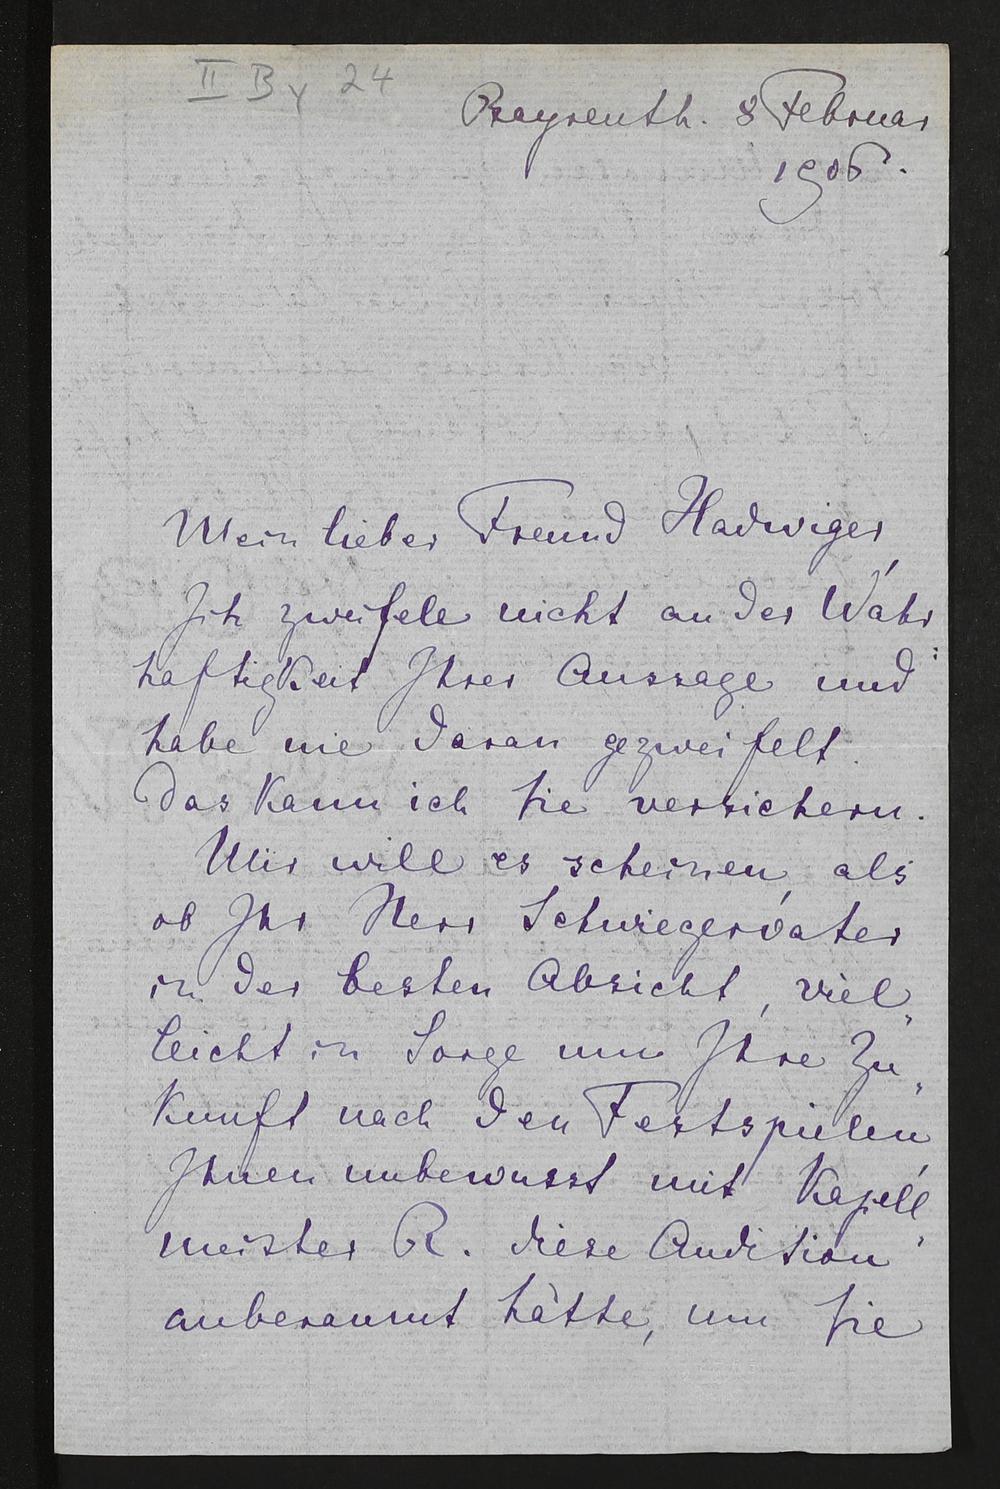 II By 24
Bayreuth. 8 Februar
1906.
Mein lieber Freund Hadwiger,
Ich zweifele nicht an der Wahr-
haftigkeit Ihrer Aussage und
habe nie daran gezweifelt.
Das kann ich Sie versichern.
Mir will es scheinen, als
ob Ihr Herr Schwiegervater
in der besten Absicht, viel-
leicht in Sorge um Ihre Zu-
kunft nach den Festspielen,
Ihnen unbewusst mit Kapell-
meister R. diese Audition
anberaumt hätte, um Sie